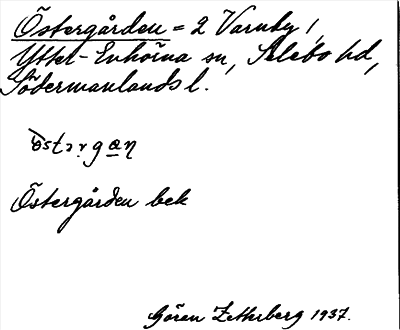 Östergården = 2 Varnby /
Ytter-Enhörna sn, Selebo hd,
Södermanlands l.
Östergården bek
Gören Zetterberg 1937.